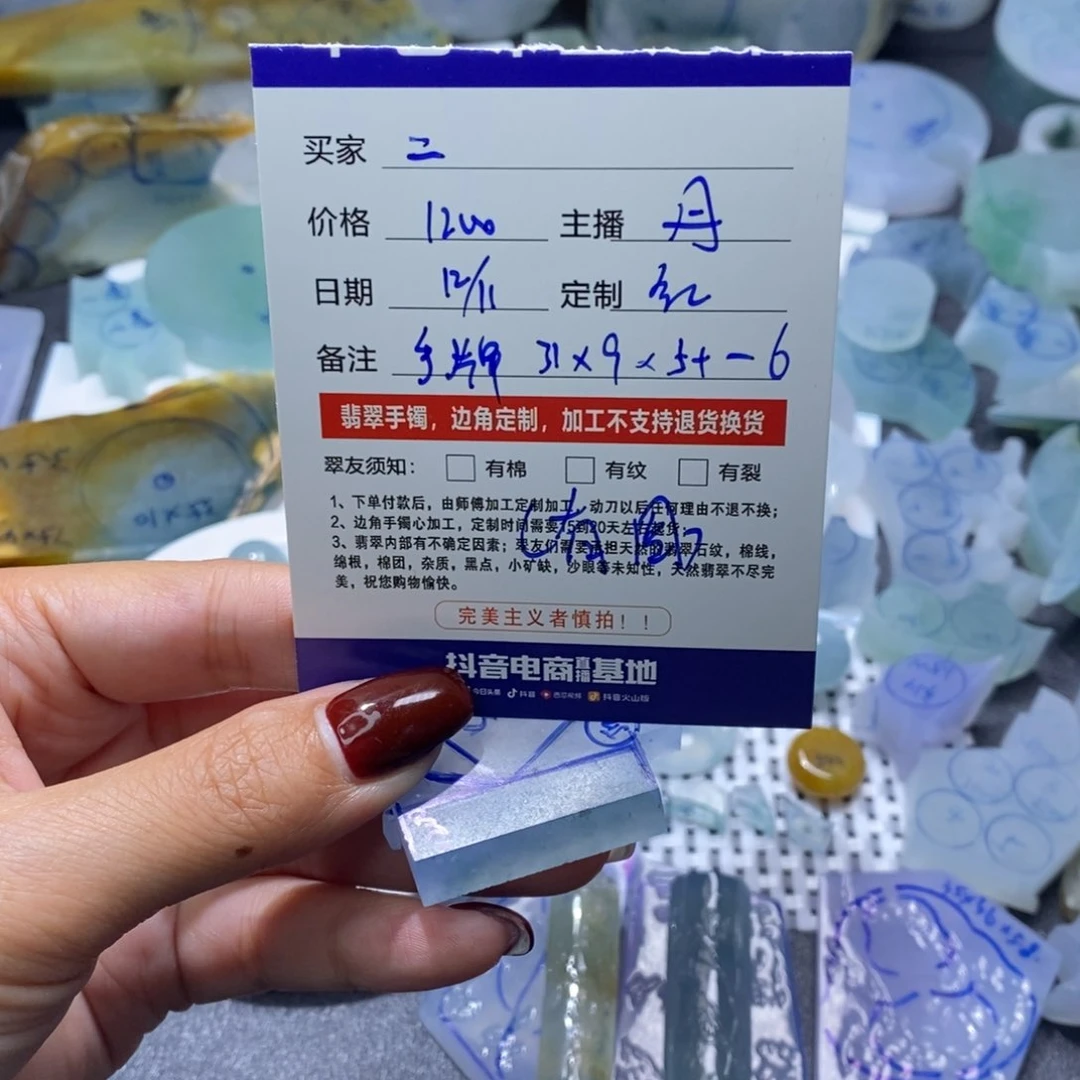 买家 二
价格 1200 主播 丹
日期 12/11 定制 红
备注 手牌 31×9×5+-6
翡翠手镯，边角定制，加工不支持退货换货
翠友须知： 有棉 有纹 有裂
1、下单付款后，由师傅加工定制加工，动刀以后任何理由不退不换；
2、边角手镯心加工，定制时间需要15到20天左右提货；
3、翡翠内部有不确定因素；翠友们需要承担天然的翡翠石纹，棉线，
绵根，棉团，杂质，黑点，小矿缺，沙眼等未知性，天然翡翠不尽完
美，祝您购物愉快。
完美主义者慎拍！！
抖音电商直播基地
今日头条 抖音 西瓜视频 抖音火山版